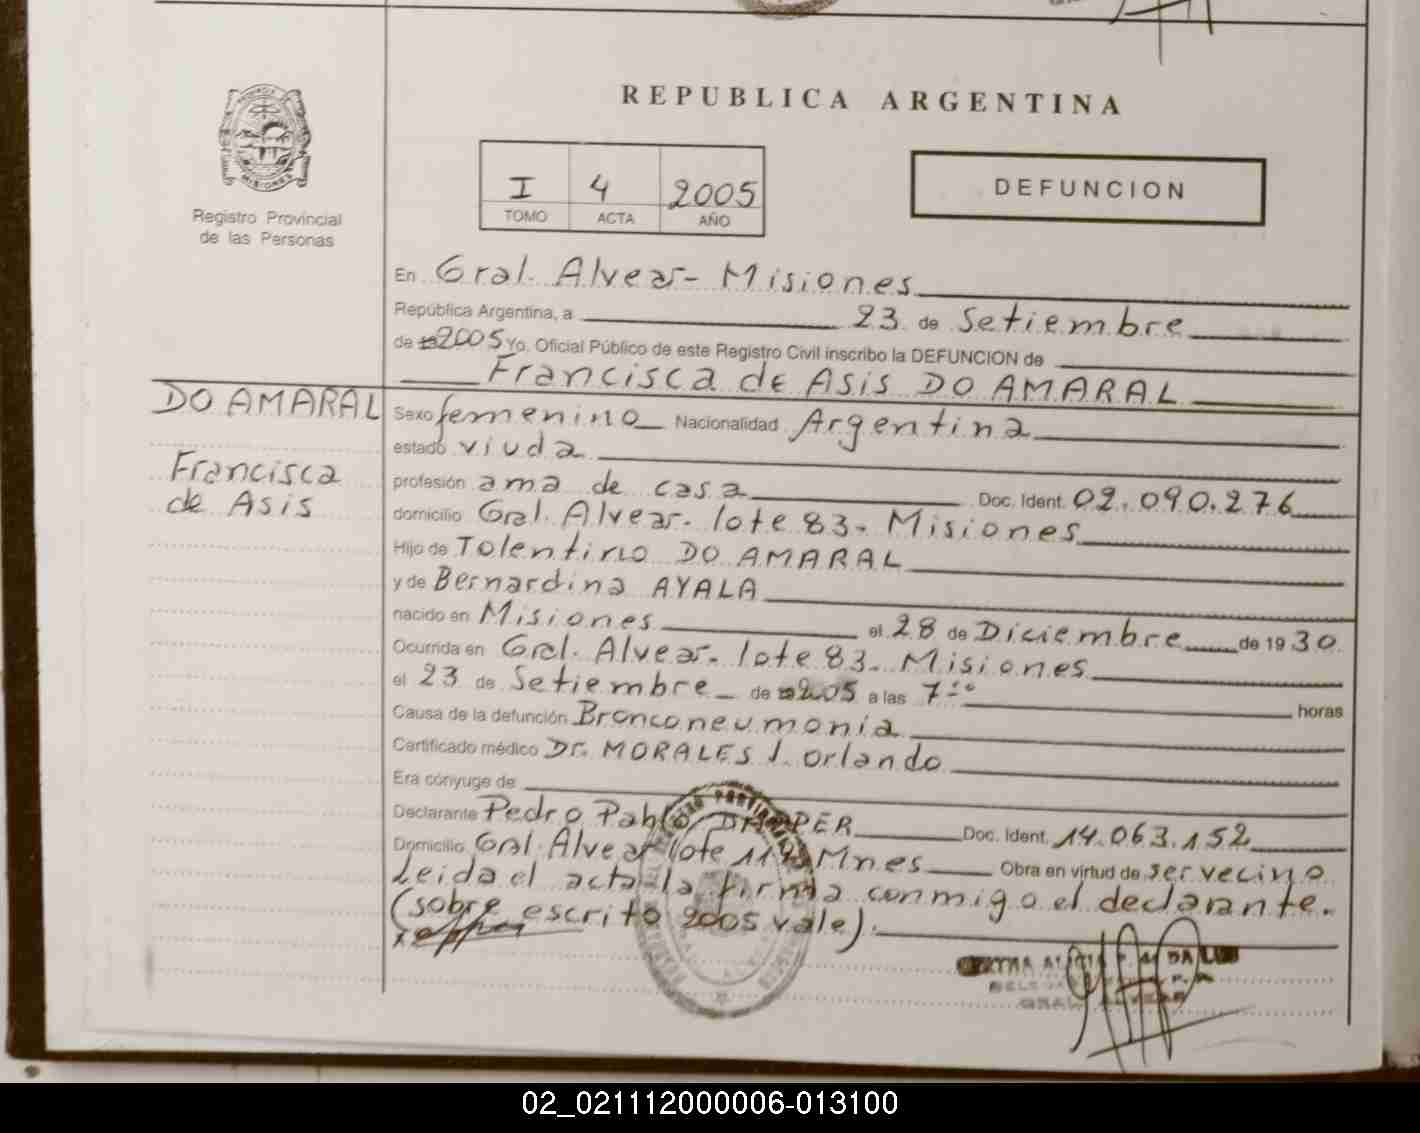 REPUBLICA ARGENTINA
PROVINCIA DE
MISIONES
Registro Provincial
de las Personas
I 4 2005
TOMO ACTA AÑO
DEFUNCION
En Gral. Alvear - Misiones
República Argentina, a 23 de Setiembre
de 2005 Yo, Oficial Público de este Registro Civil inscribo la DEFUNCION de
Francisca de ASIS DO AMARAL
DO AMARAL
Francisca
de Asis
Sexo femenino Nacionalidad Argentina
estado viuda
profesión ama de casa Doc. Ident. 02.090.276
domicilio Gral. Alvear. lote 83. Misiones
Hijo de Tolentino DO AMARAL
y de Bernardina AYALA
nacido en Misiones el 28 de Diciembre de 1930
Ocurrida en Gral. Alvear. lote 83. Misiones
el 23 de Setiembre de 2005 a las 7:00 horas
Causa de la defunción Bronconeumonia
Certificado médico Dr. MORALES J. Orlando
Era cónyuge de
Declarante Pedro Pablo Doc. Ident. 14.063.152
Domicilio Gral. Alvear lote Mnes Obra en virtud de ser vecino
Leida el acta la firma conmigo el declarante.
(sobre escrito 2005 vale).
GRAL. ALVEAR
02_021112000006-013100